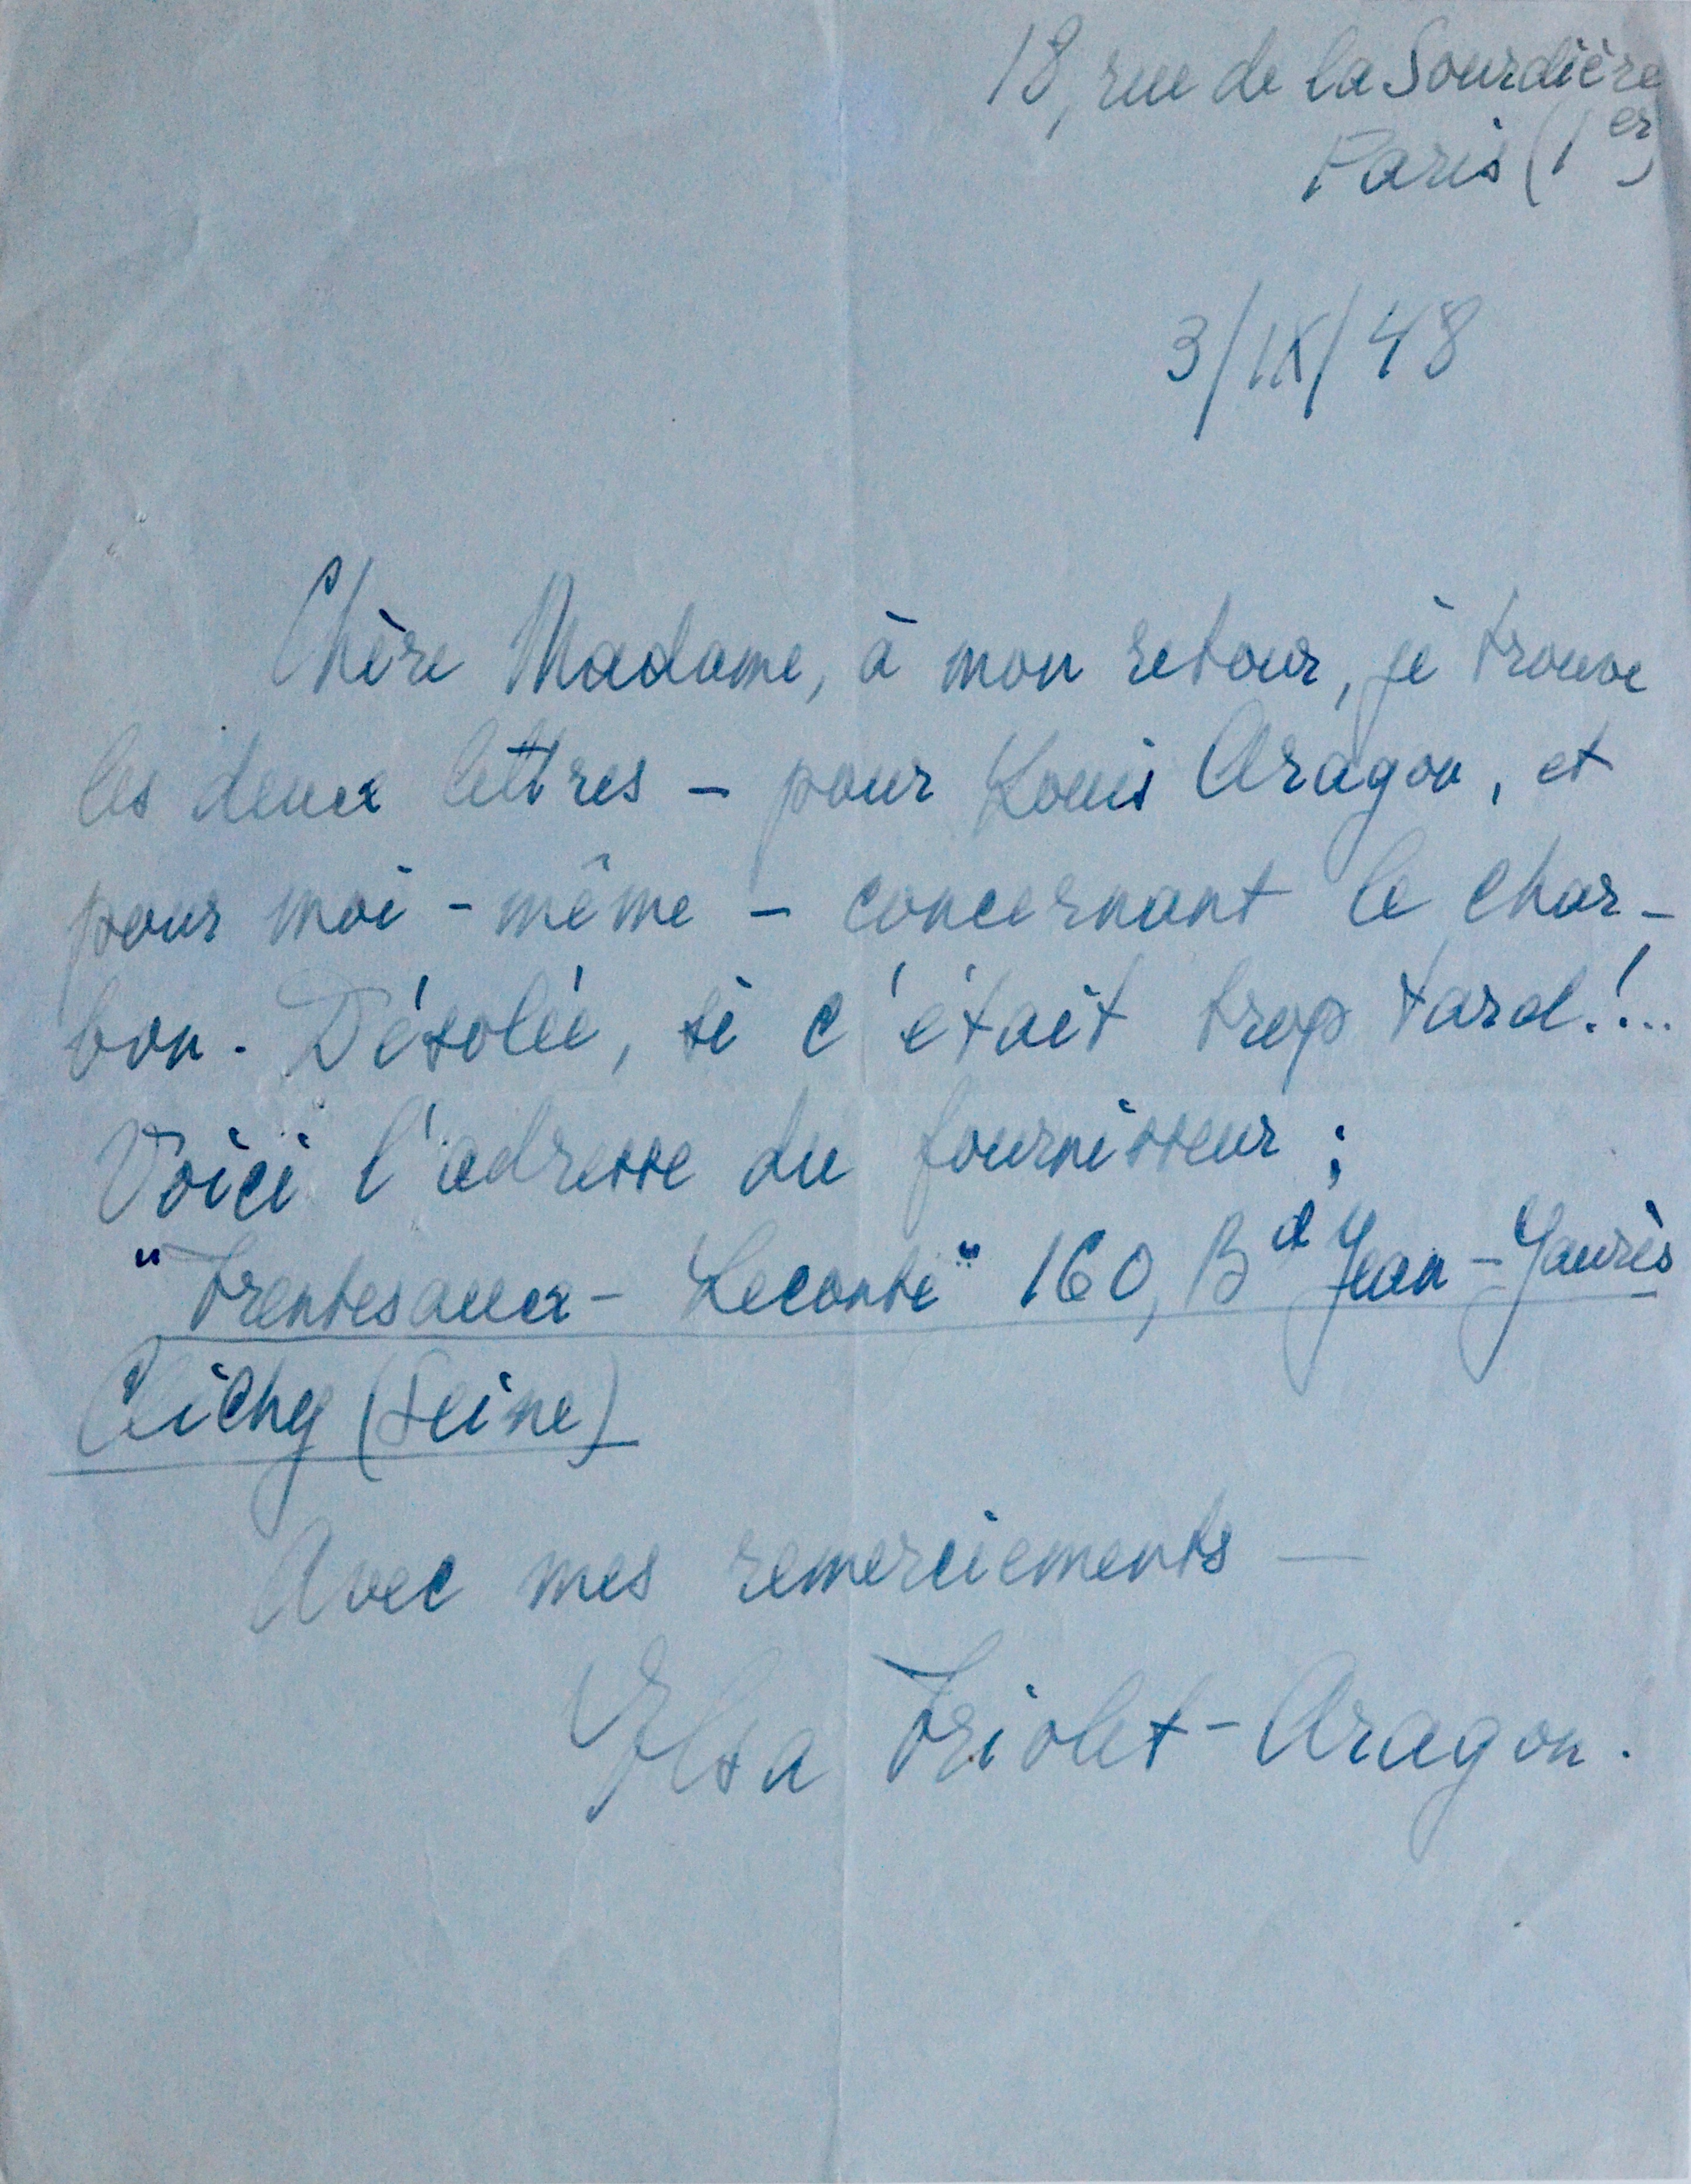 18, rue de la Sourdière
Paris (1er)
3/IX/48
Chère Madame, à mon retour, je trouve
les deux lettres – pour Louis Aragon, et
pour moi-même – concernant le char-
bon. Désolée, si c'était trop tard!...
Voici l'adresse du fournisseur :
"Trentesaux - Leconte" 160, Bd Jean-Jaurès
Clichy (Seine)
Avec mes remerciements —
Elsa Triolet-Aragon.